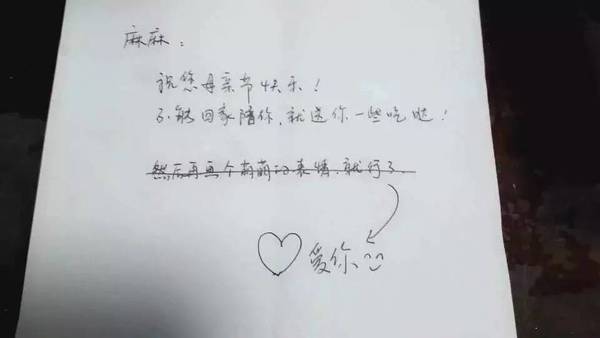 麻麻：
祝您母亲节快乐！
不能回家陪你，就送你一些吃哒！
然后再画个萌萌的表情，就行了。
爱你